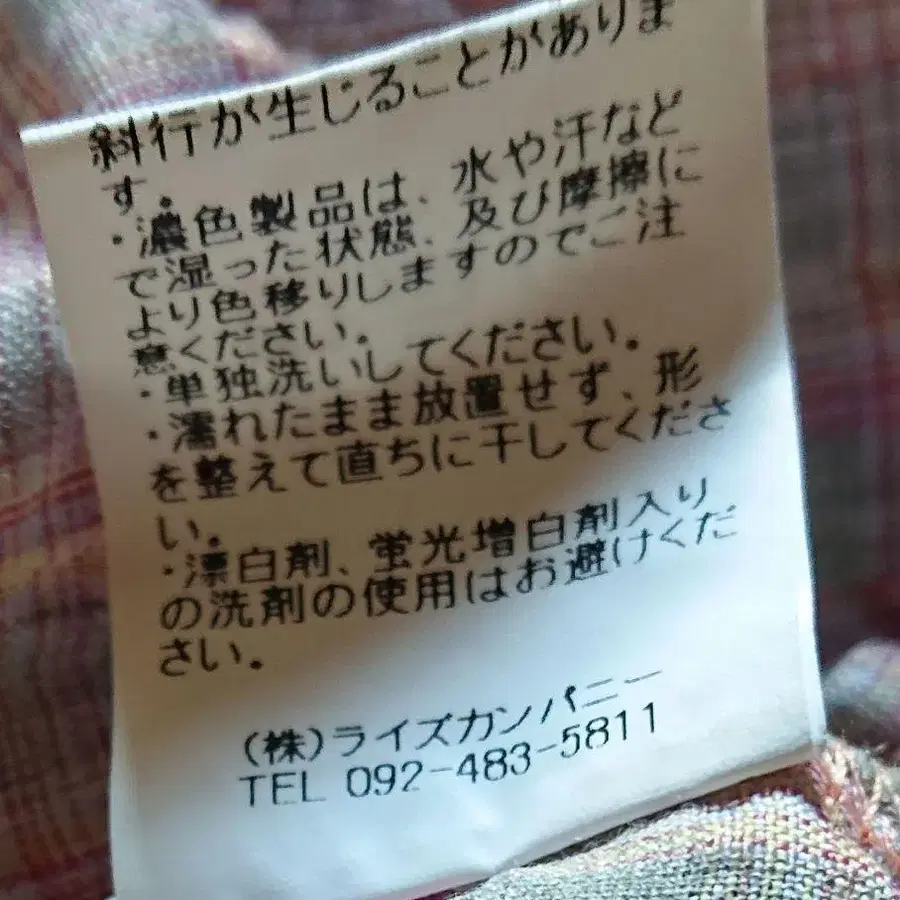 斜行が生じることがありま
す。
・濃色製品は、水や汗など
で湿った状態、及び摩擦に
より色移りしますのでご注
意ください。
・単独洗いしてください。
・濡れたまま放置せず、形
を整えて直ちに干してくださ
い。
・漂白剤、蛍光増白剤入り
の洗剤の使用はお避けくだ
さい。
(株)ライズカンパニー
TEL 092-483-5811